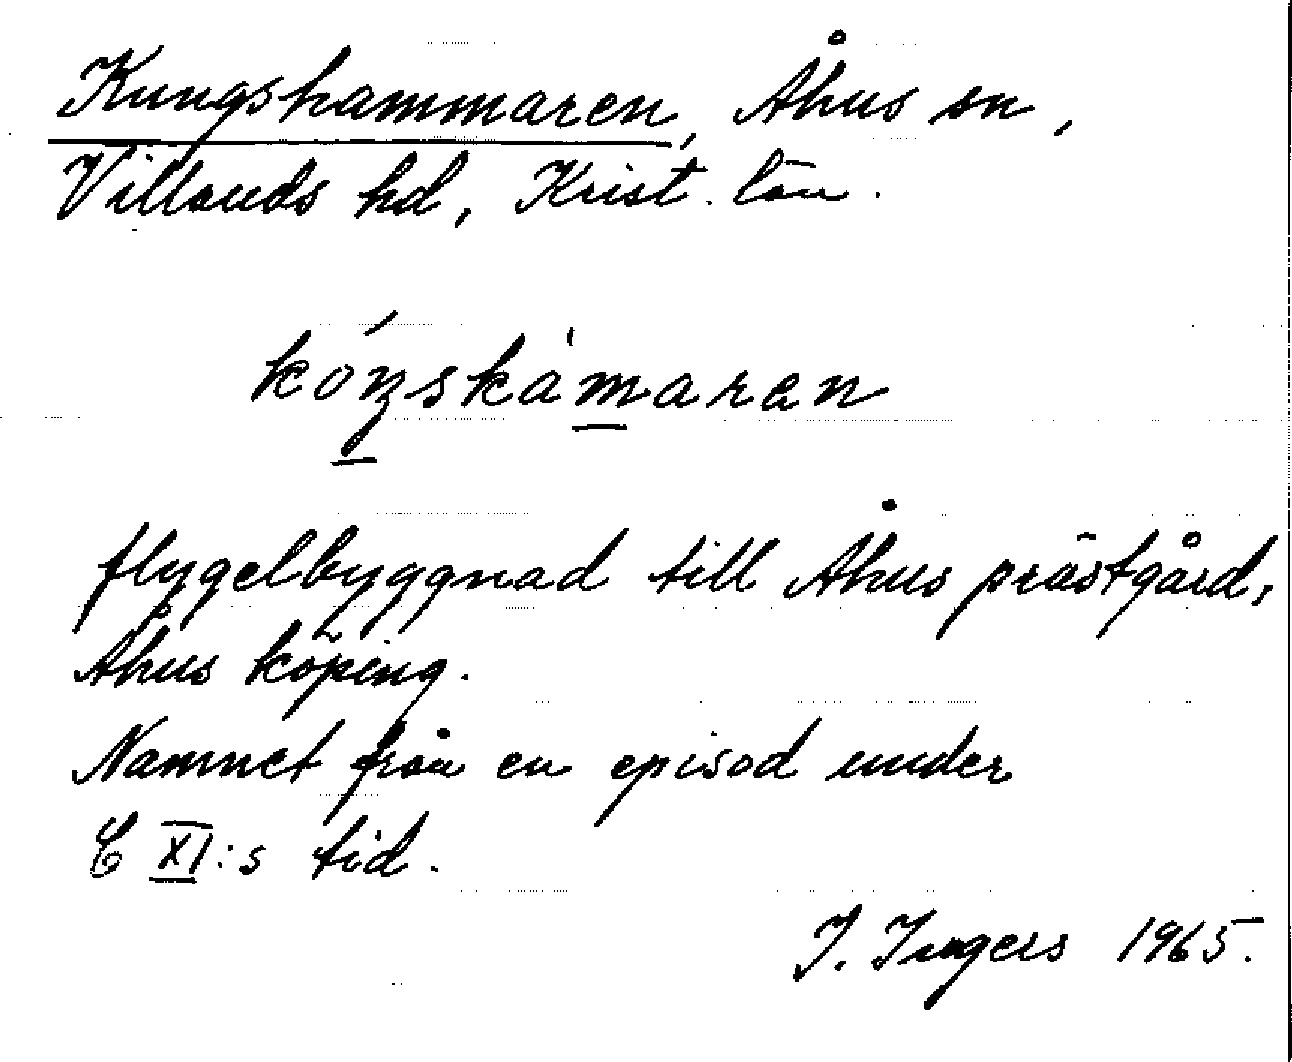 Kungshammaren, Åhus sn,
Villands hd, Krist. län.
kóŋskàmaren
flygelbyggnad till Åhus prästgård,
Åhus köping.
Namnet från en episod under
C XI:s tid.
I. Ingers 1965.